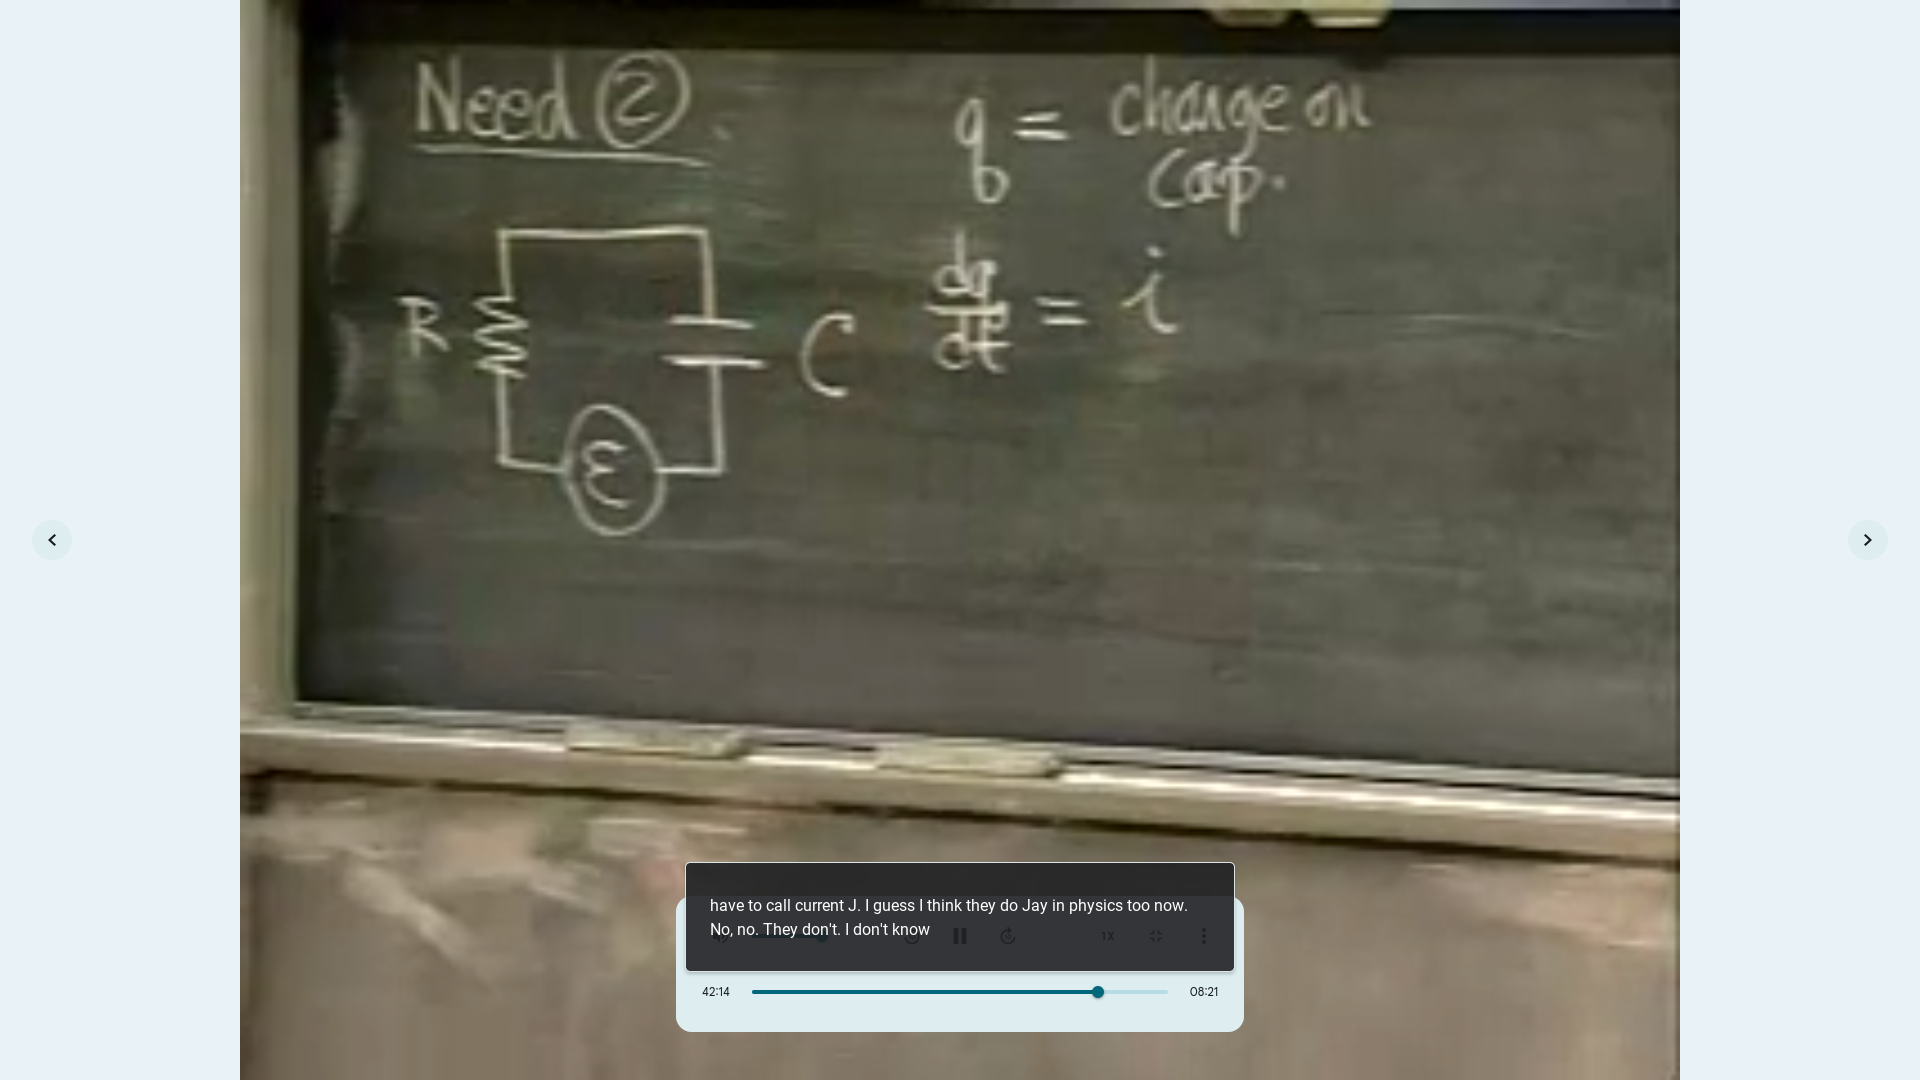 Need ②
q = charge on
cap.
R
C
dq/dt = i
ε
have to call current J. I guess I think they do Jay in physics too now.
No, no. They don't. I don't know
1X
42:14
08:21